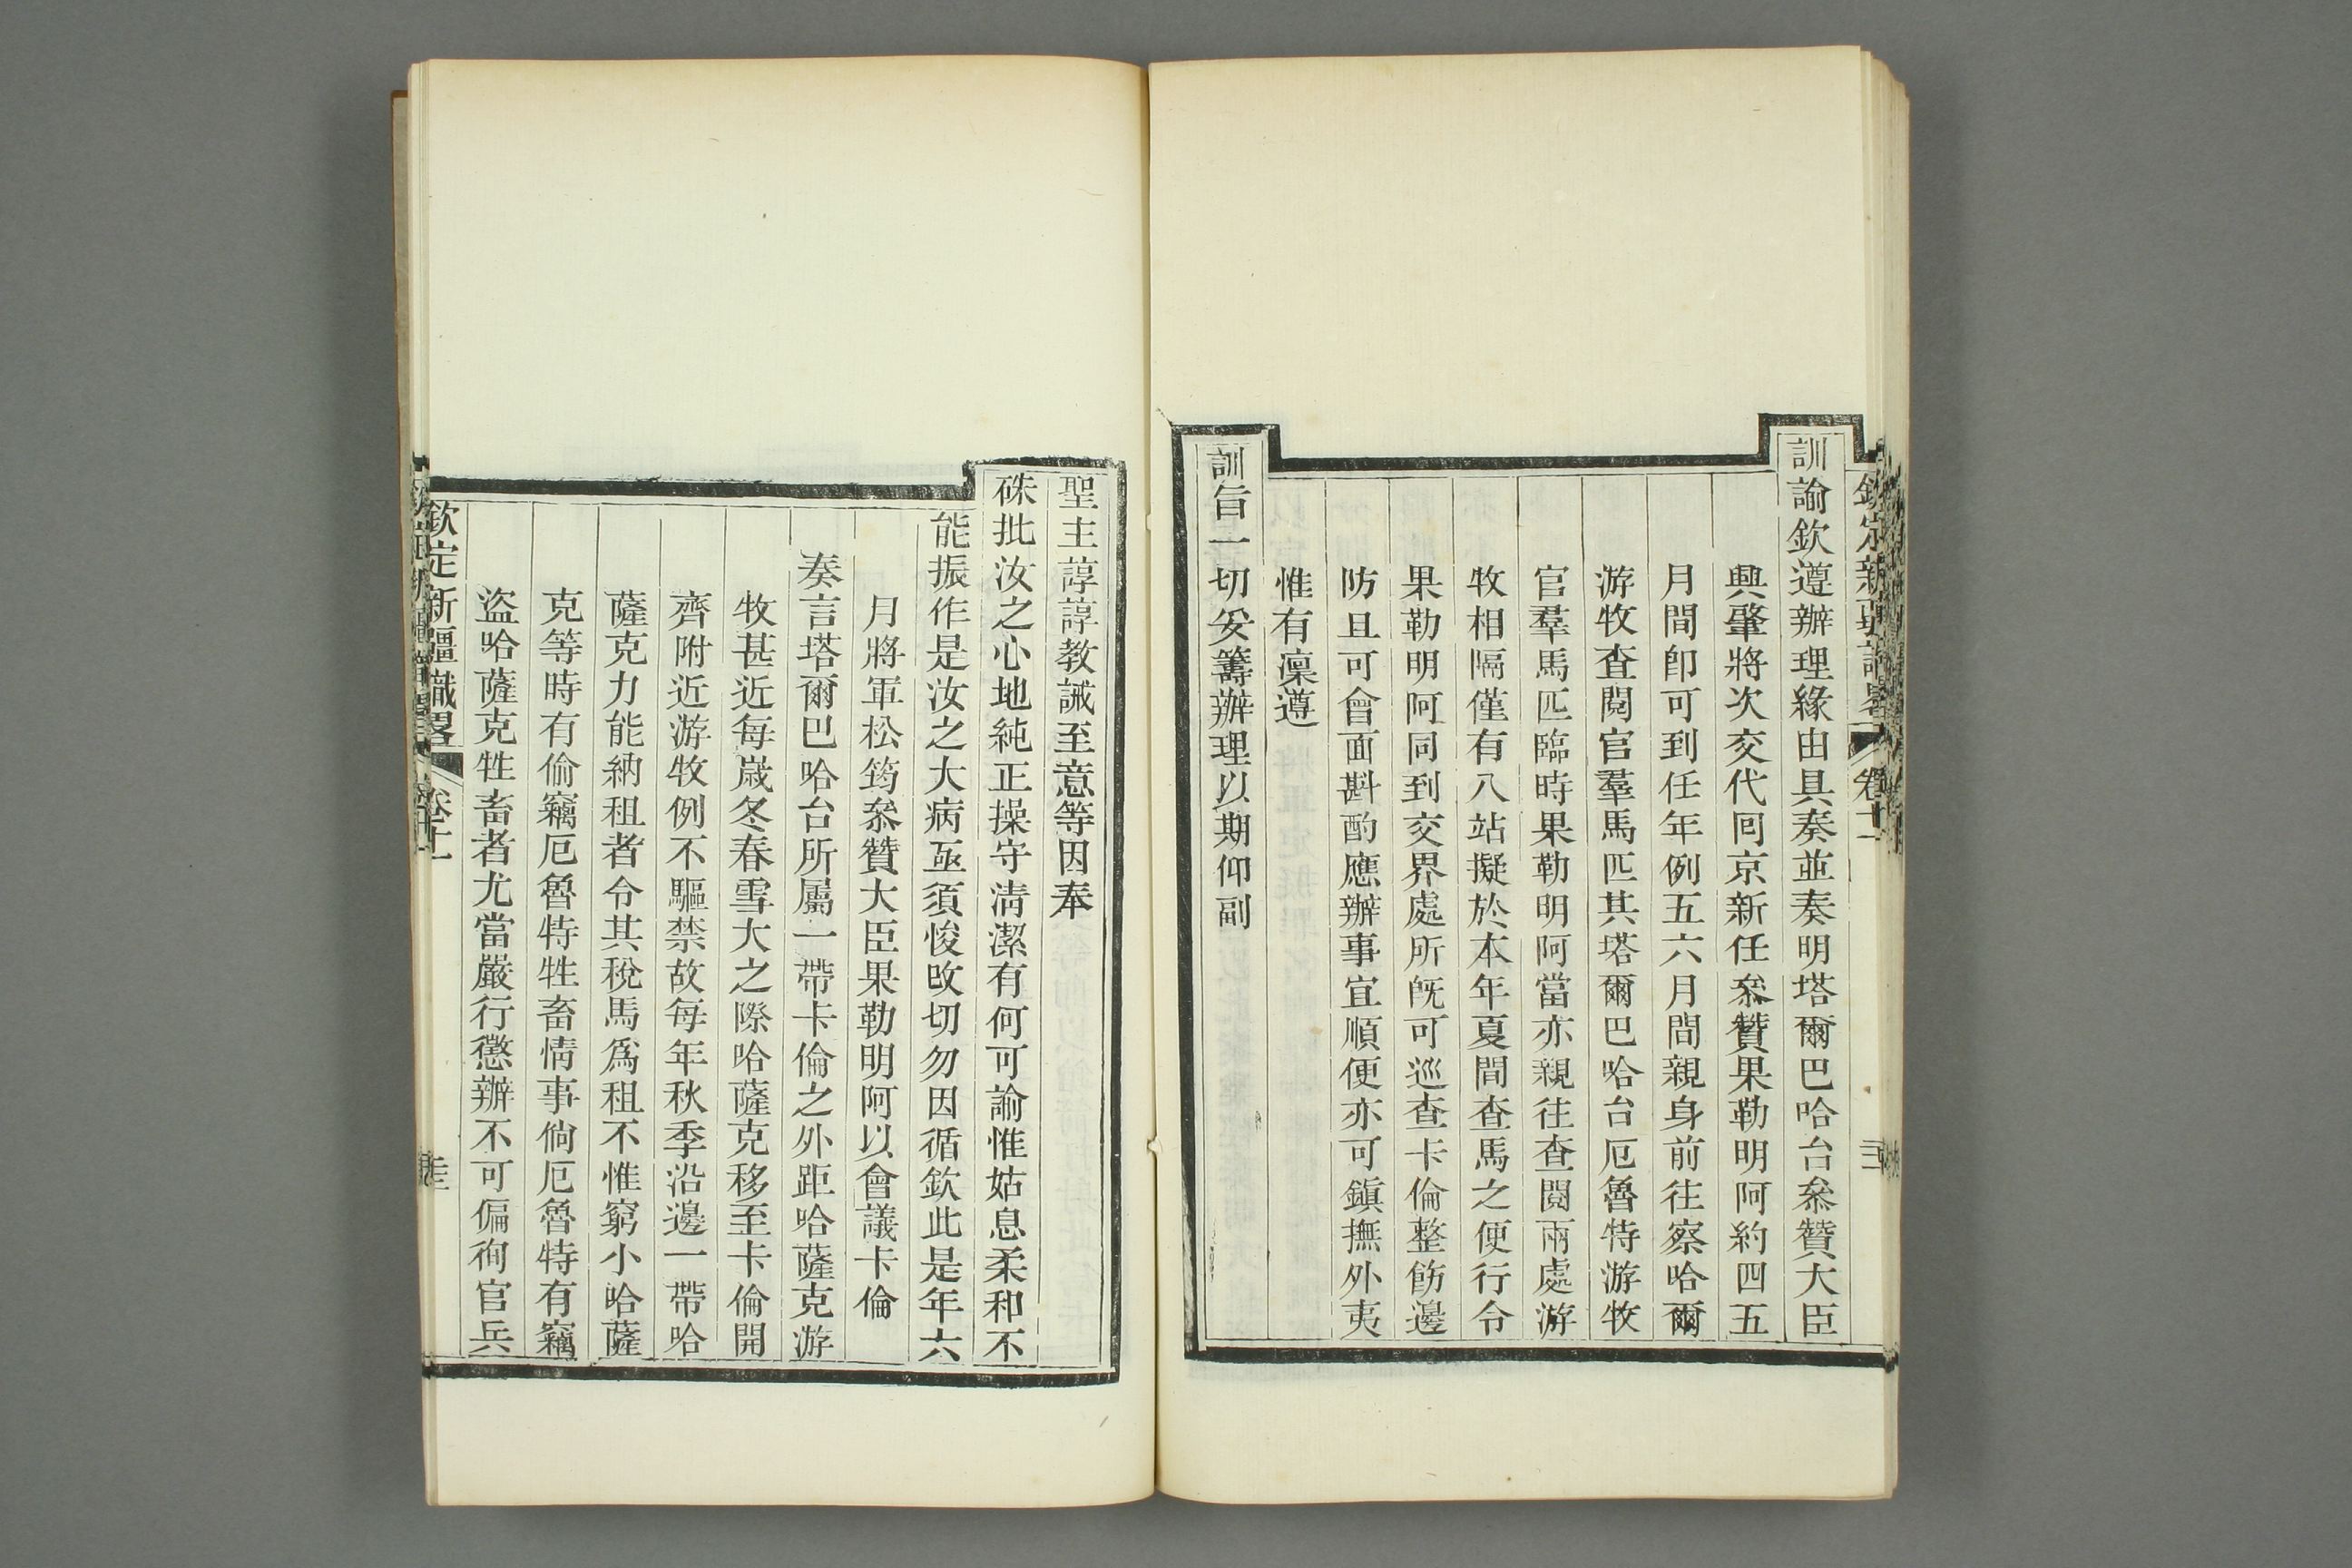 訓諭欽遵辦理緣由具奏並奏明塔爾巴哈台叅贊大臣
興肇將次交代回京新任叅贊果勒明阿約四五
月間卽可到任年例五六月間親身前往察哈爾
游牧查閱官羣馬匹其塔爾巴哈台厄魯特游牧
官羣馬匹臨時果勒明阿當亦親往查閱兩處游
牧相隔僅有八站擬於本年夏間查馬之便行令
果勒明阿同到交界處所旣可巡查卡倫整飭邊
防且可會面斟酌應辦事宜順便亦可鎭撫外夷
惟有凜遵
訓旨一切妥籌辦理以期仰副
聖主諄諄教誡至意等因奉
硃批汝之心地純正操守淸潔有何可諭惟姑息柔和不
能振作是汝之大病亟須悛改切勿因循欽此是年六
月將軍松筠叅贊大臣果勒明阿以會議卡倫
奏言塔爾巴哈台所屬一帶卡倫之外距哈薩克游
牧甚近每歲冬春雪大之際哈薩克移至卡倫開
齊附近游牧例不驅禁故每年秋季沿邊一帶哈
薩克力能納租者令其稅馬爲租不惟窮小哈薩
克等時有偷竊厄魯特牲畜情事倘厄魯特有竊
盜哈薩克牲畜者尤當嚴行懲辦不可偏徇官兵
欽定新疆識畧 卷十一